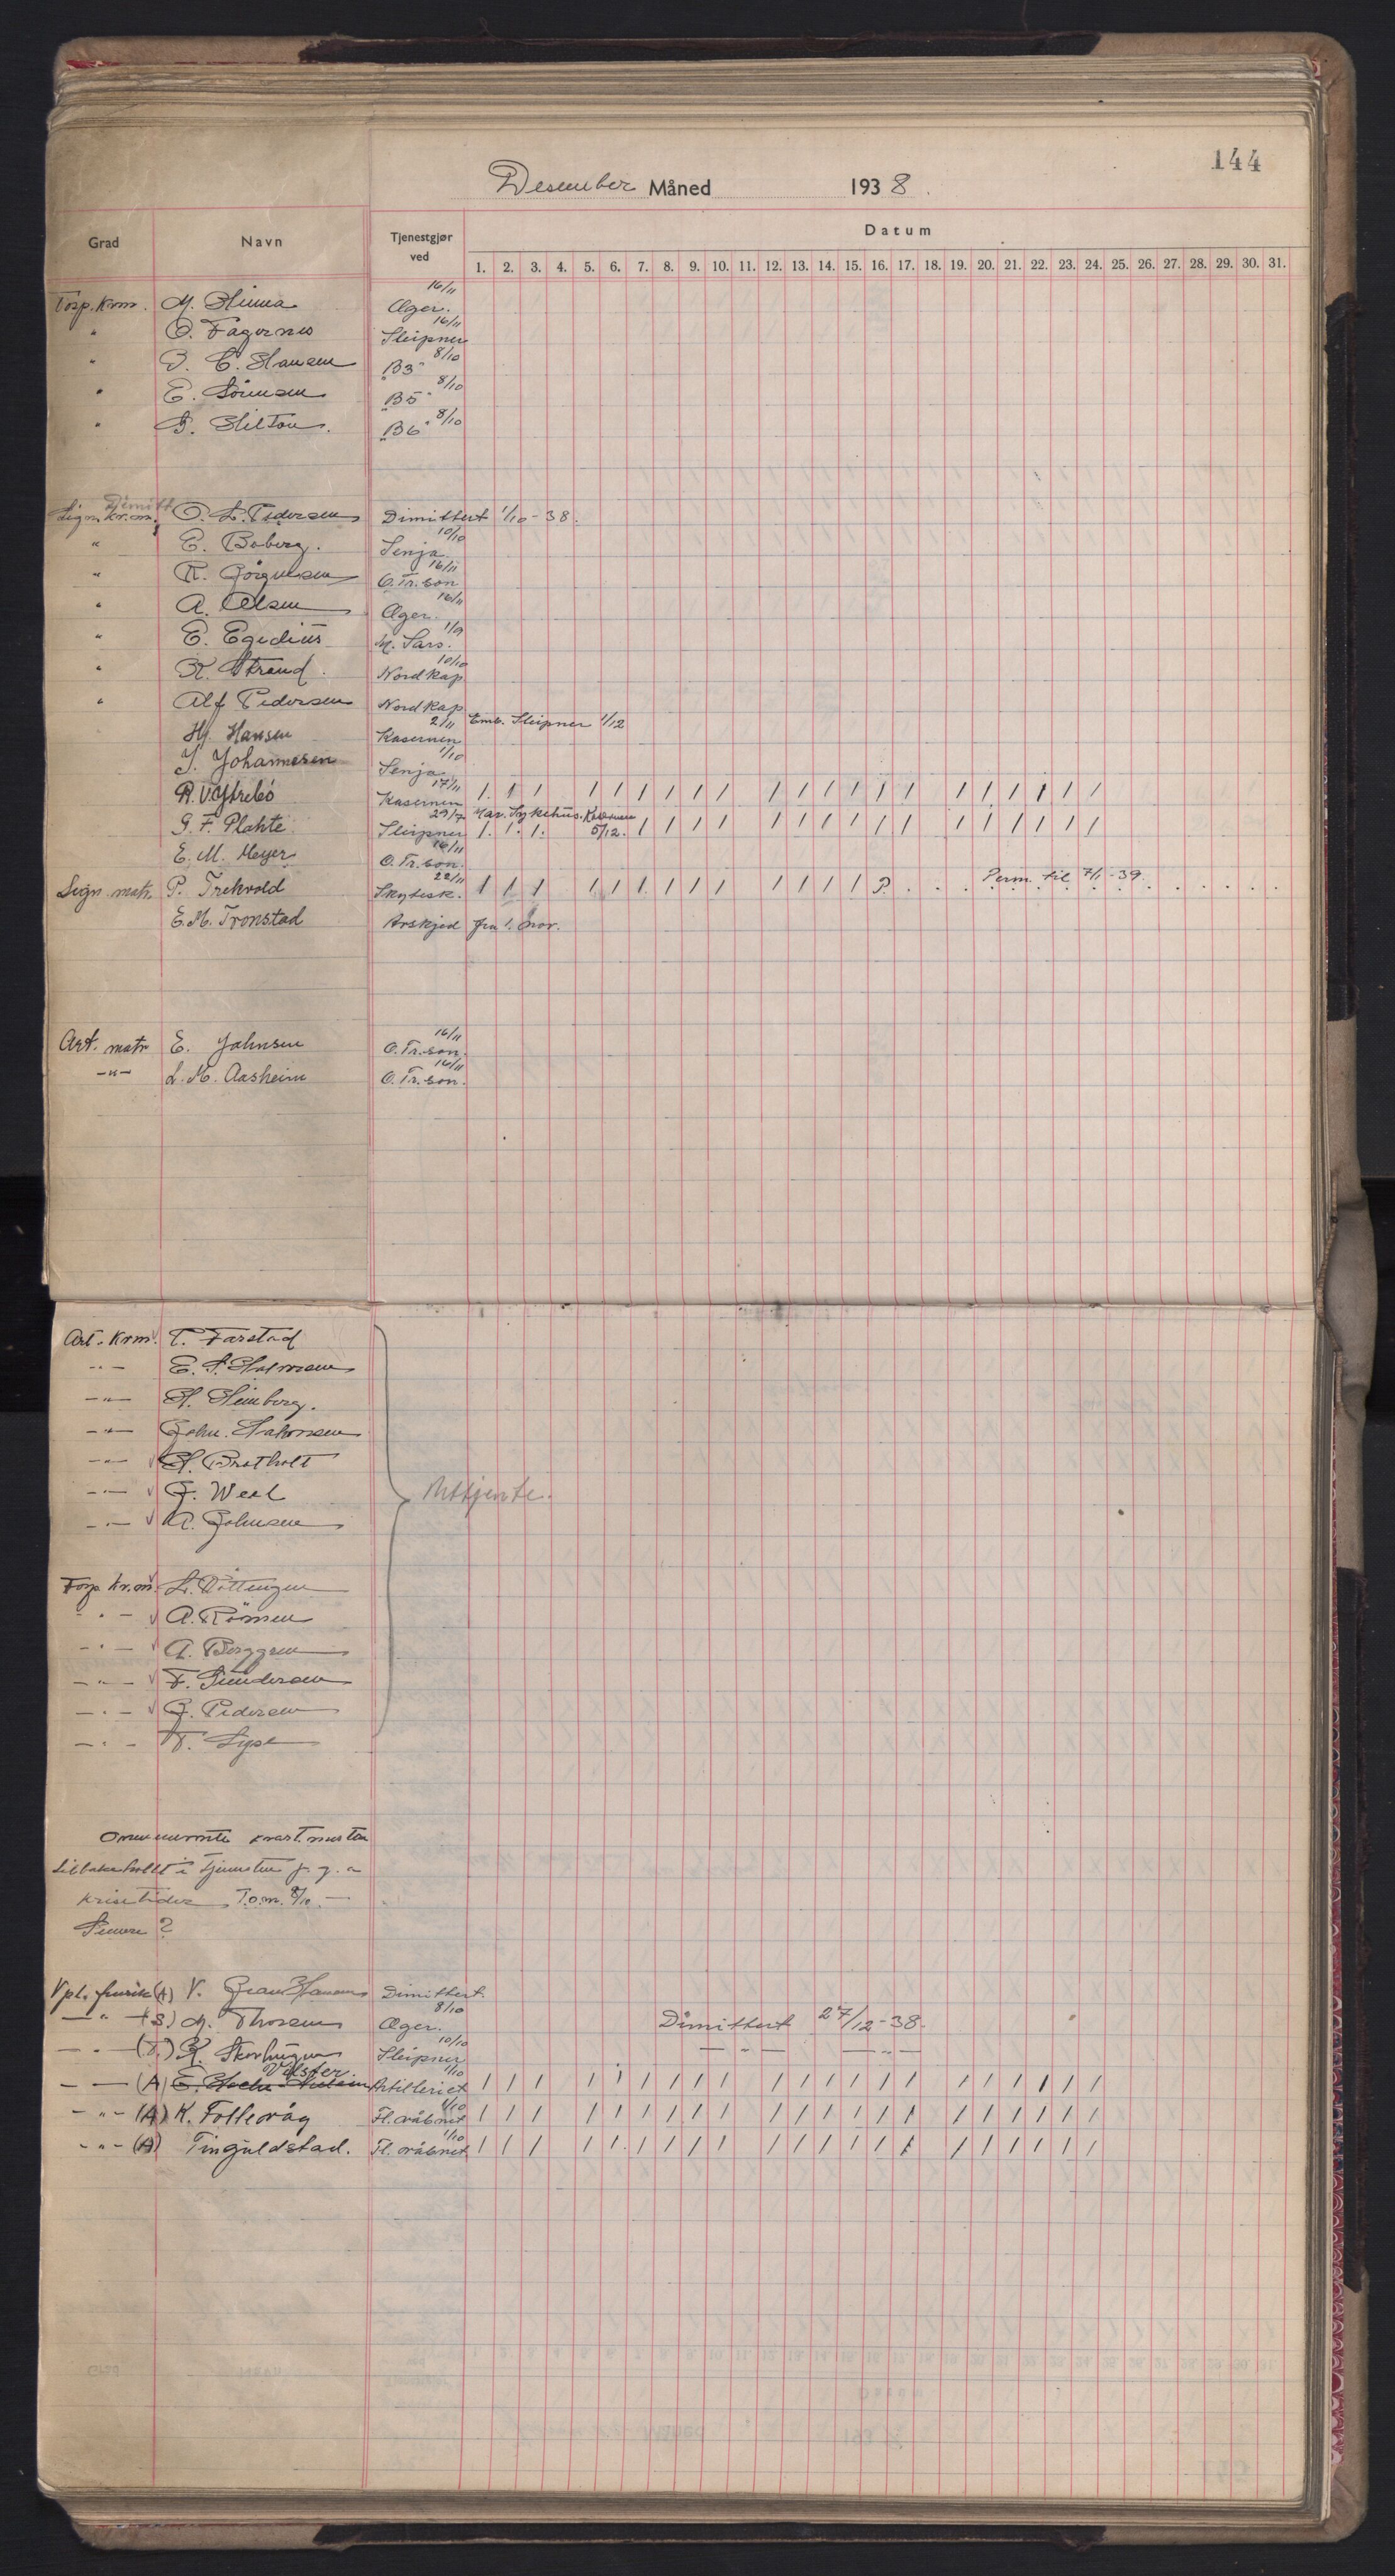 144
Desember Måned 1938.
Grad Navn Tjenestgjør ved Datum
1. 2. 3. 4. 5. 6. 7. 8. 9. 10. 11. 12. 13. 14. 15. 16. 17. 18. 19. 20. 21. 22. 23. 24. 25. 26. 27. 28. 29. 30. 31.
Torp. Krm. M. Hinna Æger. 16/11
" O. Fagernes Sleipner 16/11
" O. C. Hansen "B3" 8/10
" E. Sörensen "B5" 8/10
" G. Hilton. "B6" 8/10
Dimitt
Sign. kr.m. O. L. Pedersen Dimittert 1/10-38.
" E. Boberg. Senja 10/10
" R. Jörgensen O. Tr.son 16/11
" A. Olsen Æger. 16/11
" E. Egidius M. Sars. 1/9
" K. Strand. Nordkap 10/10
" Alf Pedersen Nordkap
Hj. Hansen Kasernen 2/11 Emb. Sleipner 1/12
J. Johannesen Senja 1/10
R. V. Ytrebö Kasernen 17/11 / / / / / / / / / / / / / / / / / / / / / /
G. F. Plahte Sleipner 29/7 Mar. Sykehus. Kasernen 5/12. / / / / / / / / / / / / / / / / /
E. M. Meyer O. Tr.son. 16/11
Sign. matr. P. Trekvold Skytesk. 22/11 / / / / / / / / / / / / / P. . . . Perm. til 7/1-39.
E. M. Tronstad Avskjed fra 1. nov.
Art. matr E. Johnsen O. Tr.son. 16/11
-"- L. M. Aasheim O. Tr.son. 16/11
Art. Krm. T. Farstad
-"- E. S. Halvorsen
-"- H. Heimberg.
-"- John. Halvorsen
-"- H. Brotholt
-"- J. Weel
-"- A. Johnsen
Uttjente.
Torp. kr.m.
-"- A. Römen
-"- A. Berggren
-"- F. Gundersen
-"- J. Pedersen
-"- T. Lyse
Ovennevnte
tilbakeholdt i tjenesten p. g. a
krisetider T.o.m. 8/10.
Senere ?
Vpl. (A) V. Dimittert.
-"- (S) M. Thorsen Æger. 8/10 Dimittert 27/12-38.
-"- (T) R. Sleipner 10/10 -"- -"-
-"- (A) Artilleriet 1/10 / / / / / / / / / / / / / / / / / / / / / /
-"- (A) K. Folkvåg 1/10 / / / / / / / / / / / / / / / / / / / / / /
-"- (A) Tinguldstad. 1/10 / / / / / / / / / / / / / / / / / / / / / /